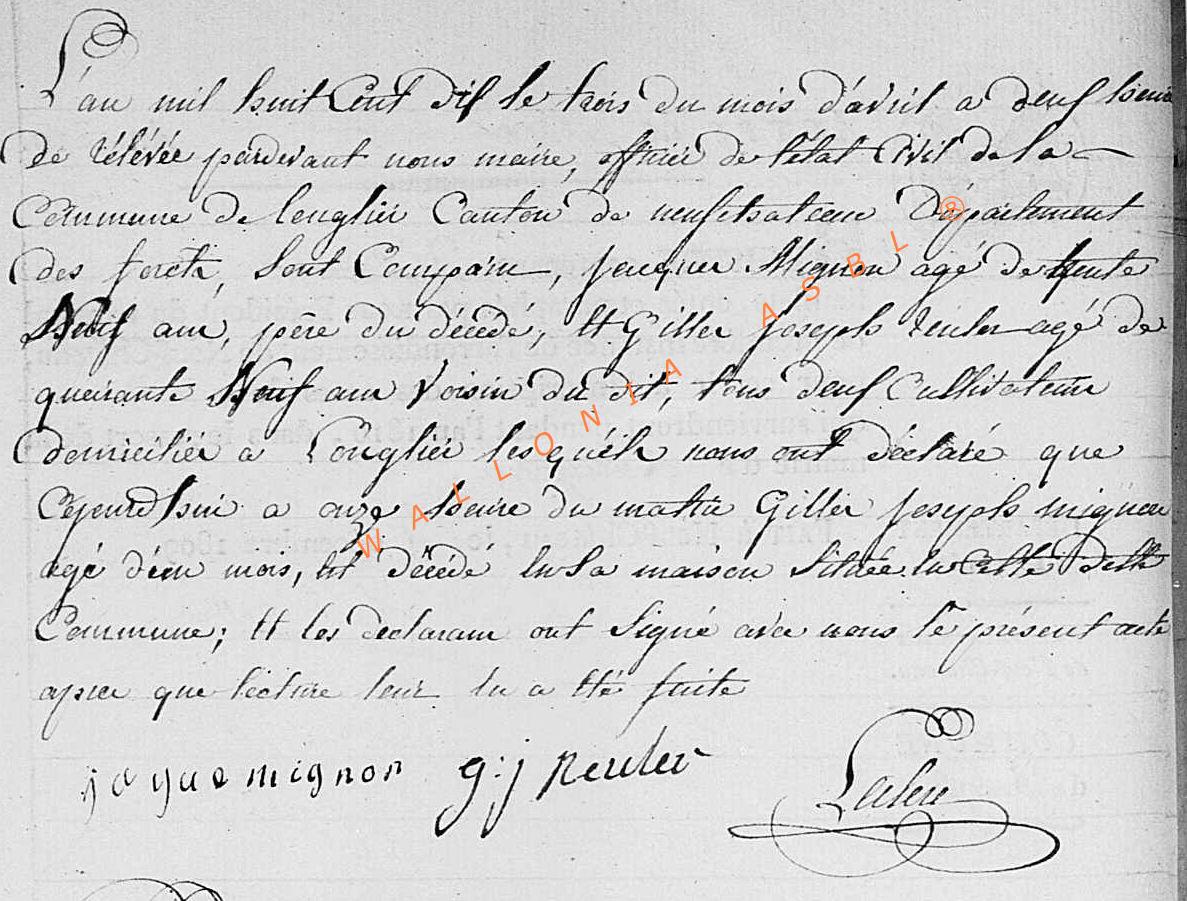 L'an mil huit Cent dix le trois du mois d'avril a deux heures
de rélévée pardevant nous maire, officier de l'état Civil de la
Commune de longlier Canton de neufchateau Département
des forets, sont Comparu, jacques Mignon agé de trente
Neuf ans, père du décédé, et Giller joseph reuler agé de
quarante Neuf ans Voisin du dit, tous deux Cultivateurs
domicilier a Longlier lesquéls nous ont déclaré que
Cejourdhui a onze heure du matin Giller joseph mignon
agé d'un mois, est décédé en sa maison située en Cette ditte
Commune; et les declarans ont signé avec nous le présent acte
aprer que lecture leur en a eté faite
jaque mignon g:j reuler
WALLONIA ASBL ®